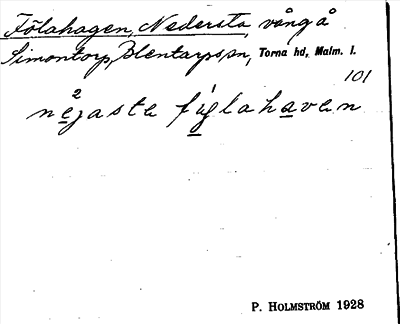 Fölahagen, Nedersta, vång å
Simontorp, Blentarps sn, Torna hd, Malm. l.
101
2
nejaste figlahaven
P. HOLMSTRÖM 1928